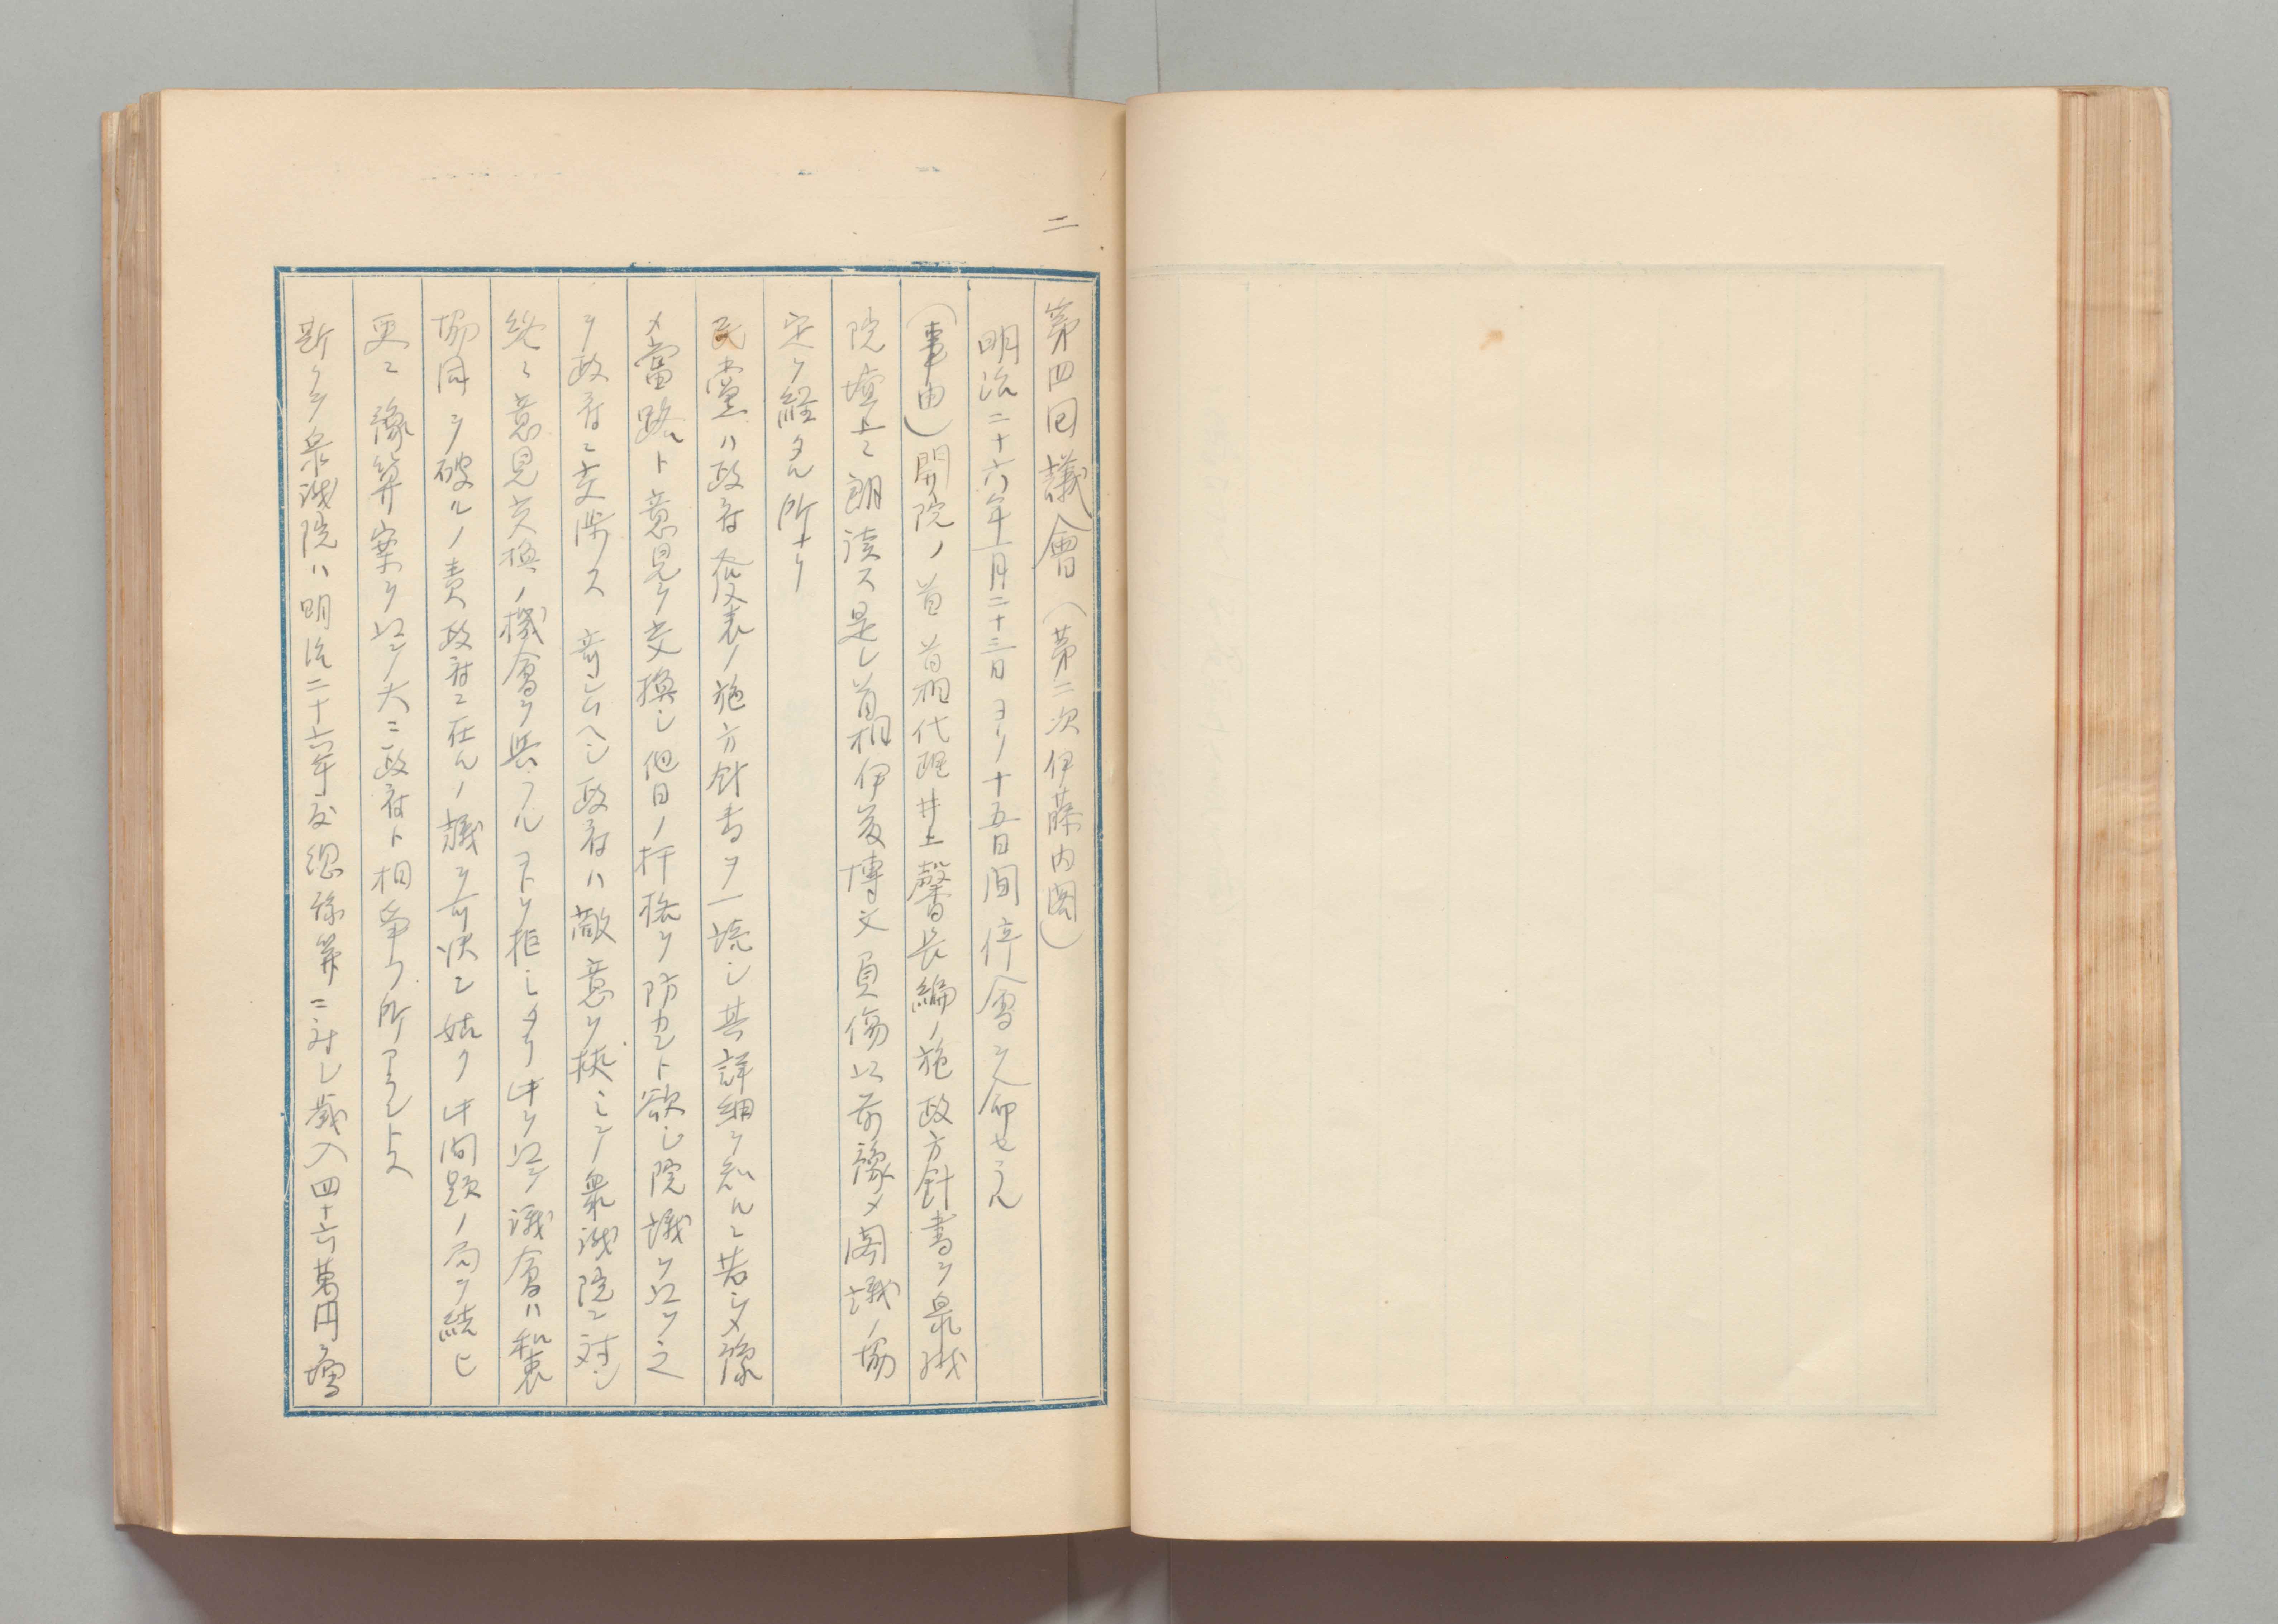 二
第四回議會（第二次伊藤内閣）
明治二十六年一月二十三日ヨリ十五日間停會ヲ命セラル
（事由）開院ノ首首相代理井上馨長編ノ施政方針書ヲ衆議
院壇上ニ朗読ス是レ首相伊藤博文負傷以前豫メ閣議ノ協
定ヲ経タル所ナリ
民黨ハ政府發表ノ施方針書ヲ一読シ其詳細ヲ知ルニ苦シメ豫
メ當路ト意見ヲ交換シ他日ノ扞格ヲ防カント欲シ院議ヲ以ツ之
ヲ政府ニ交渉ス 政府ハ敵意ヲ挟ミテ衆議院ニ対シ
終ニ意見交換ノ機會ヲ與フルコトヲ拒ミタリ此ヲ以テ議會ハ和衷
協同ヲ破ルノ責政府ニ在ルノ議ヲ可決シ姑ク此問題ノ局ヲ結ヒ
更ニ豫算案ヲ以テ大ニ政府ト相争フ所アラントス
斯クテ衆議院ハ明治二十六年度総豫算ニ対シ歳入四十六萬円ヲ増